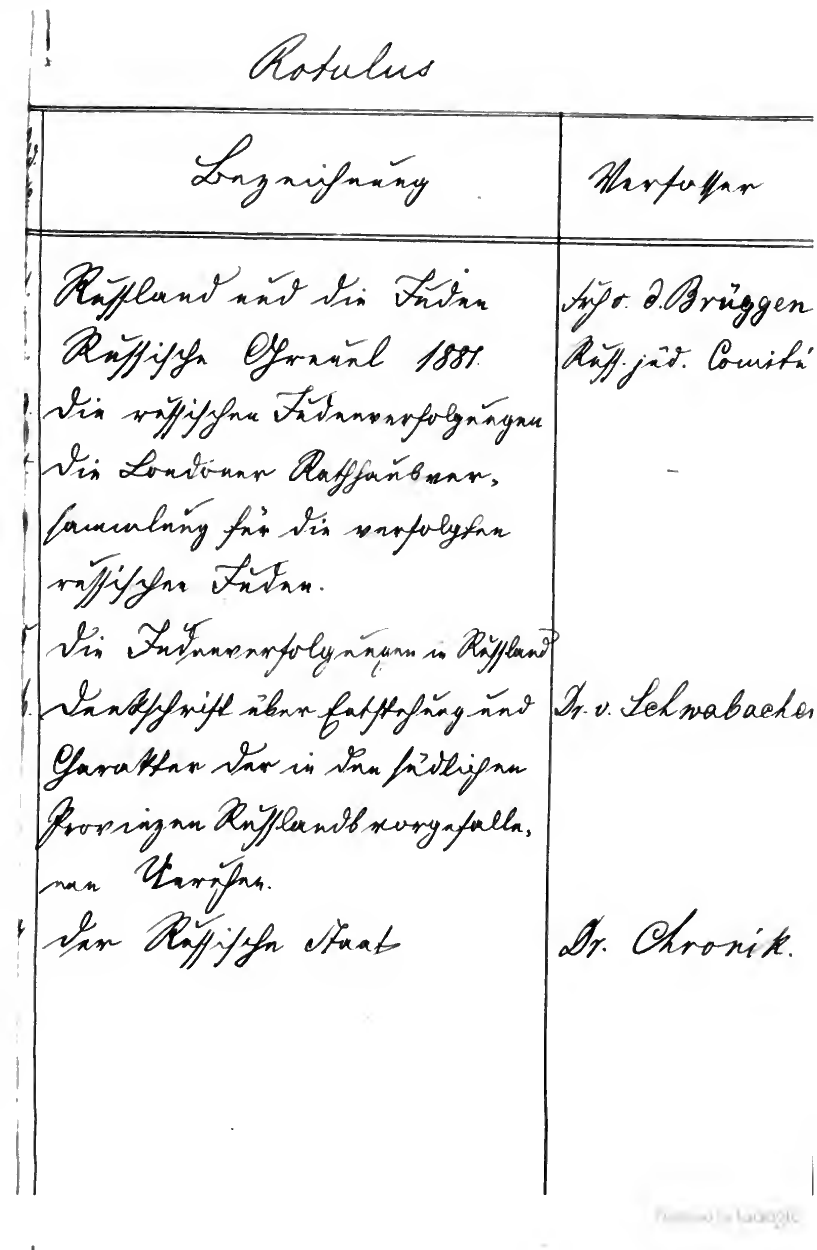 Rotulus
Bezeichnung Verfasser
Russland und die Juden Frhr. d. Brüggen
Russische Greuel 1881. Russ. jüd. Comité
Die russischen Judenverfolgungen
Die Londoner Rathhausver-
sammlung für die verfolgten
russischen Juden.
Die Judenverfolgungen in Russland
6. Denkschrift über Entstehung und Dr. v. Schwabacher
Charakter der in den südlichen
Provinzen Russlands vorgefalle-
nen Unruhen.
Der Russische Staat Dr. Chronik.